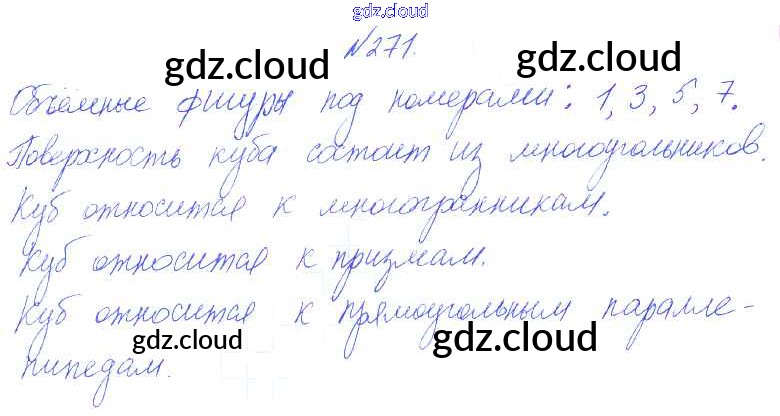 gdz.cloud
№271.
gdz.cloud gdz.cloud
Объёмные фигуры под номерами: 1, 3, 5, 7.
Поверхность куба состоит из многоугольников.
gdz.cloud gdz.cloud
Куб относится к многогранникам.
Куб относится к призмам.
Куб относится к прямоугольным паралле-
gdz.cloud gdz.cloud
пипедам.